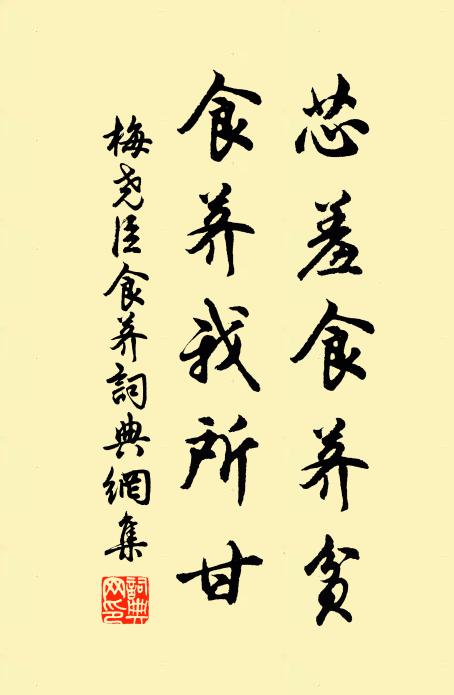 世羞食荠贫
食荠我所甘
梅尧臣食荠詞典網集
詞典网印